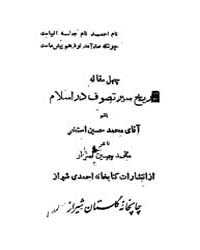 نام احمد نام جمله انبیاست
چونکه صد آمد نود هم پیش ماست
چهل مقاله
تاریخ سیر تصوف در اسلام
بقلم
آقای محمد حسین استخر
ناشر
محمد حسین
از انتشارات کتابخانه احمدی شیراز
چاپخانه گلستان شیراز